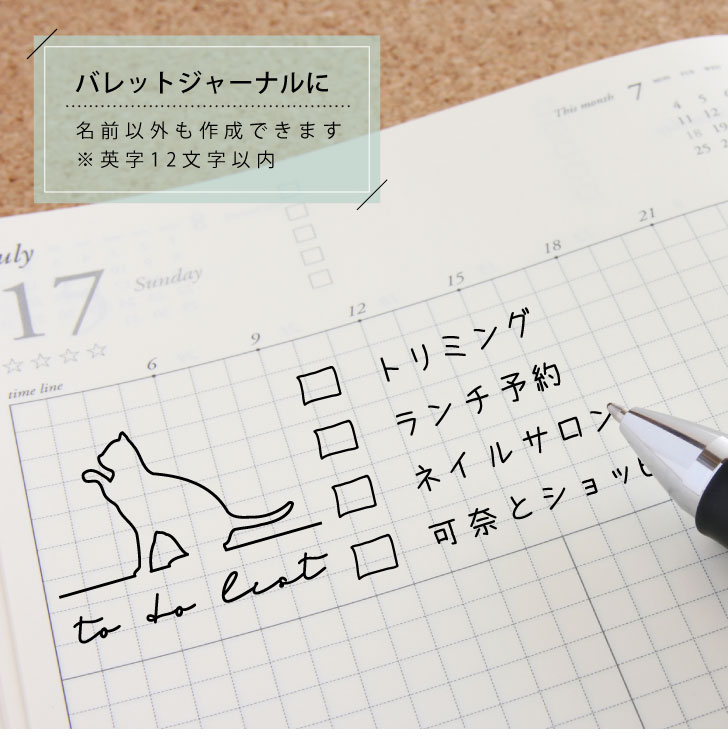 バレットジャーナルに
名前以外も作成できます
※英字12文字以内
This month 7 MON TUE WED
4 5
11 12
18 19
25
uly
17 Sunday
☆☆☆☆
time line
6 9 12 15 18 21
トリミング
ランチ予約
ネイルサロン
可奈とショッピ
to do list